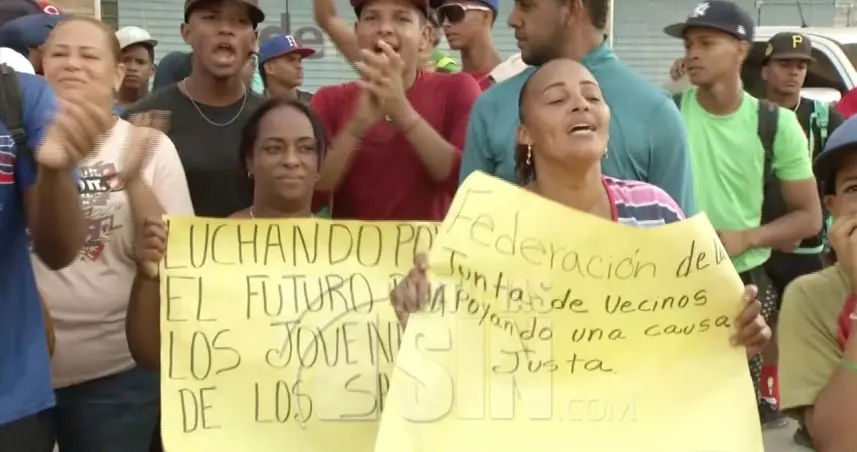 LUCHANDO PO
EL FUTURO
LOS JOVENE
DE LOS
Federación de
Juntas de vecinos
Apoyando una causa
Justa.
SIN
.COM